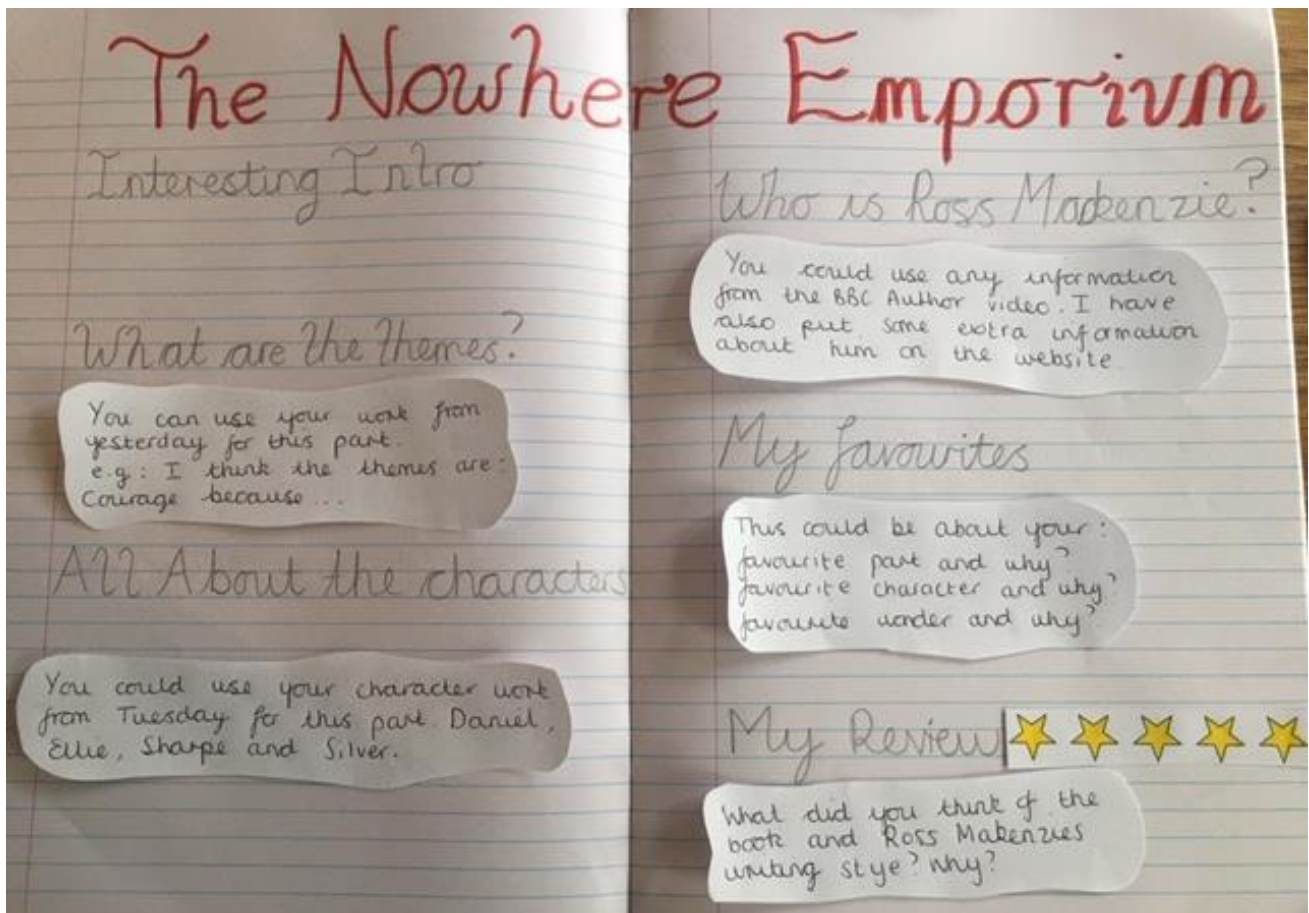 The Nowhere Emporium
Interesting Intro
What are the themes?
You can use your work from
yesterday for this part.
e.g: I think the themes are:
Courage because...
All About the characters
You could use your character work
from Tuesday for this part. Daniel,
Ellie, Sharpe and Silver.
Who is Ross Mackenzie?
You could use any information
from the BBC Author video. I have
also put some extra information
about him on the website
My favourites
This could be about your:
favourite part and why?
favourite character and why?
favourite wonder and why?
My Review
What did you think of the
book and Ross Makenzies
writing stye? Why?